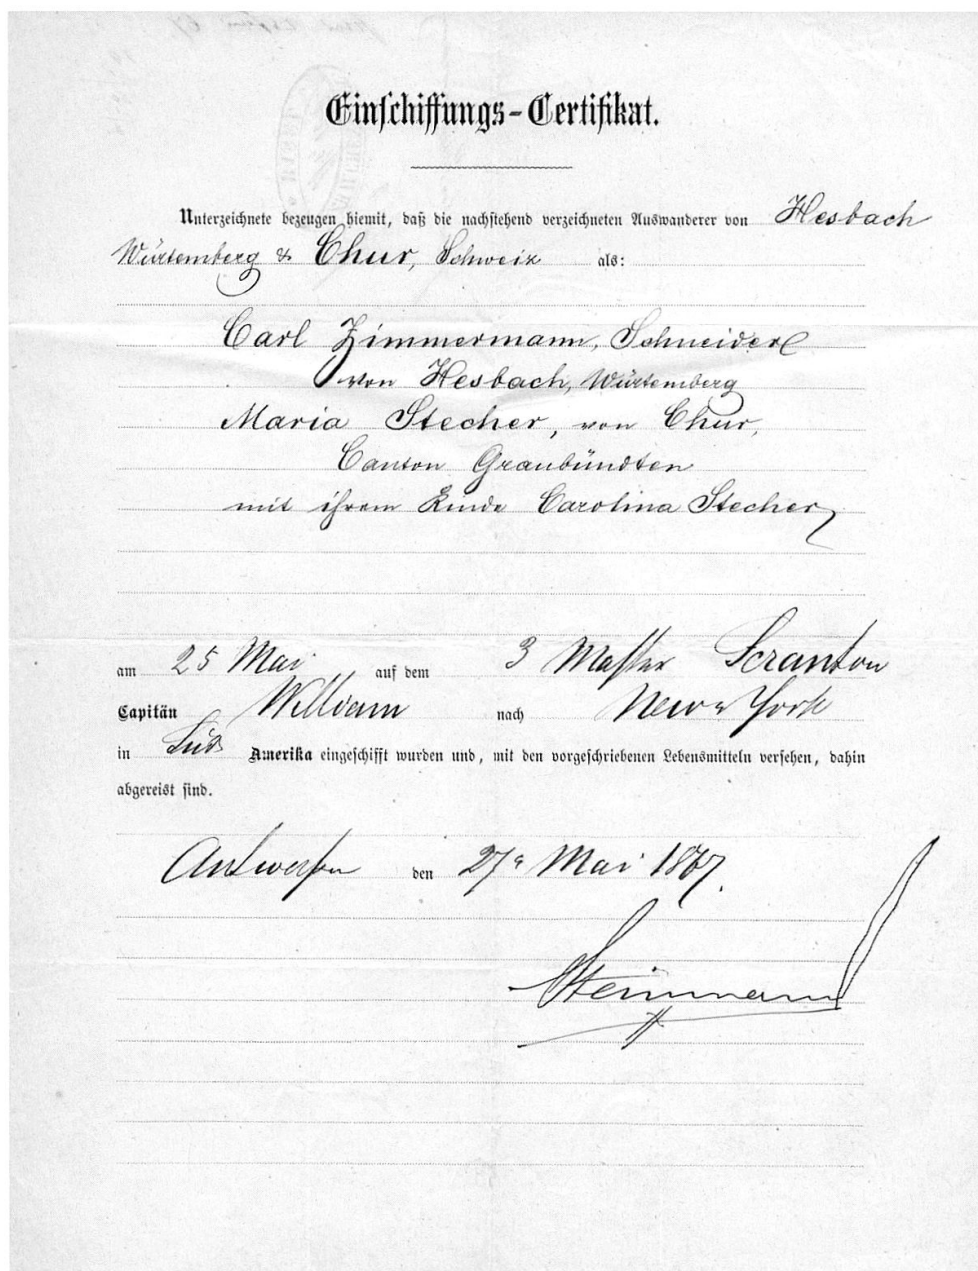 Einschiffungs-Certifikat.
Unterzeichnete bezeugen hiemit, daß die nachstehend verzeichneten Auswanderer von Hesbach
Würtemberg & Chur, Schweiz als:
Carl Zimmermann, Schneider
von Hesbach, Würtemberg
Maria Stecher, von Chur,
Canton Graubündten
mit ihrem Kinde Carolina Stecher
am 25 Mai auf dem 3 Master Scranton
Capitän William nach New York
in Amerika eingeschifft wurden und, mit den vorgeschriebenen Lebensmitteln versehen, dahin
abgereist sind.
Antwerpen den 27 Mai 1867.
Steinmann